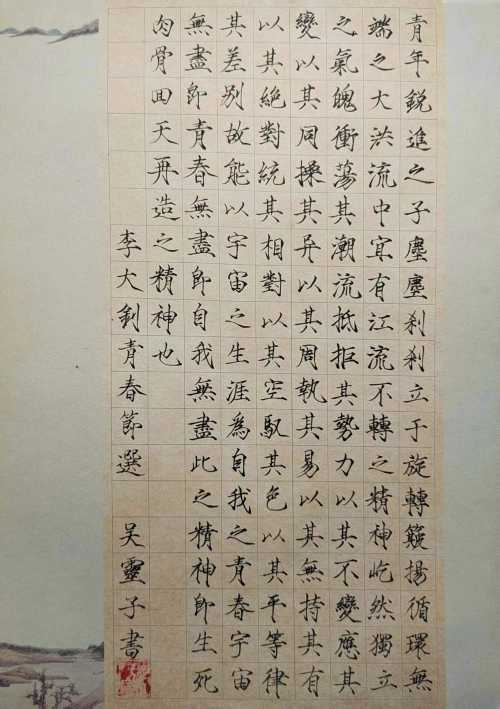 青年銳進之子塵塵刹刹立于旋轉簸揚循環無
端之大洪流中宜有江流不轉之精神屹然獨立
之氣魄衝蕩其潮流抵拒其勢力以其不變應其
變以其同操其异以其周執其易以其無持其有
以其絕對統其相對以其空馭其色以其平等律
其差別故能以宇宙之生涯為自我之青春宇宙
無盡即青春無盡即自我無盡此之精神即生死
肉骨回天再造之精神也
李大釗青春節選 吳靈子書